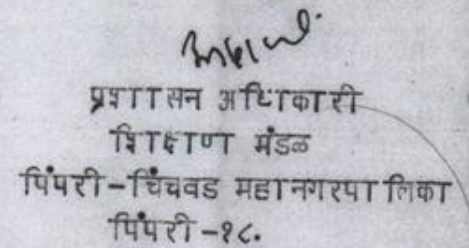 प्रशासन अधिकारी
शिक्षण मंडळ
पिंपरी-चिंचवड महानगरपालिका
पिंपरी-१८.